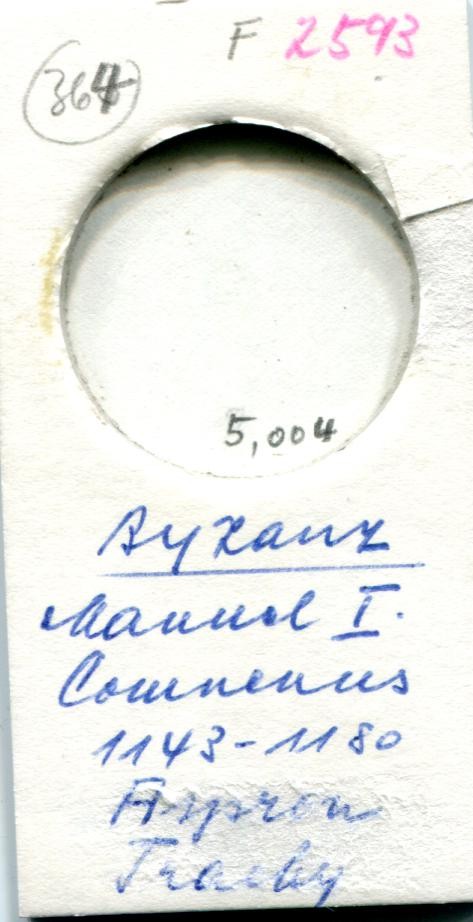 F 2593
364
5,004
Byzanz
Manuel I.
Comnenus
1143-1180
Aspron
Trachy